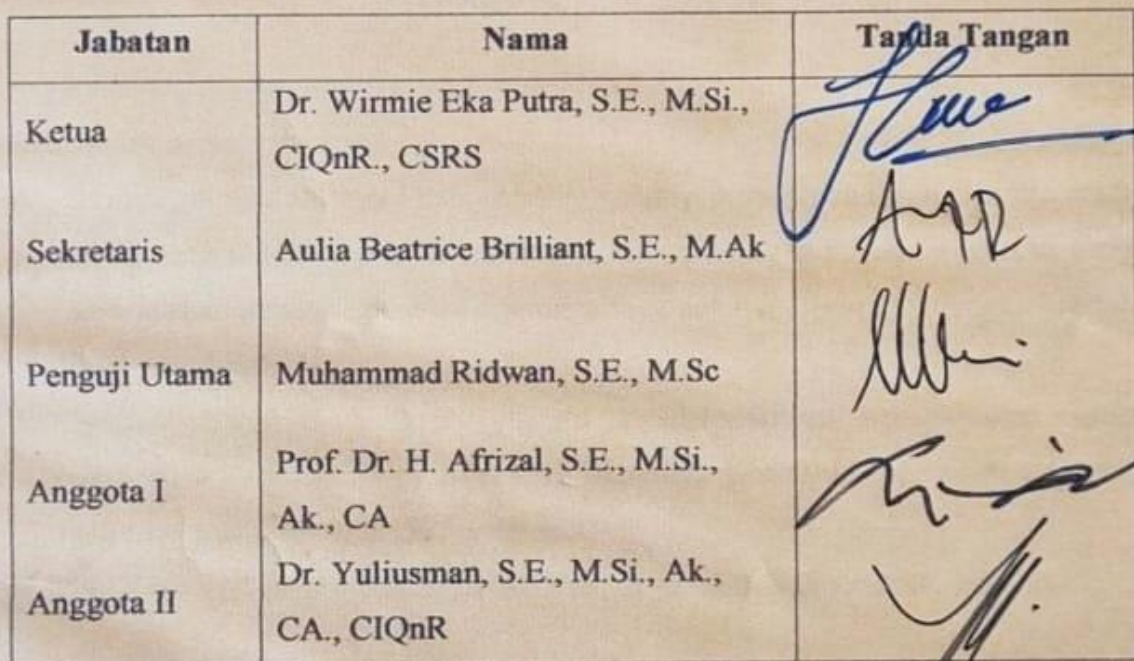 Jabatan Nama Tanda Tangan
Ketua
Dr. Wirmie Eka Putra, S.E., M.Si.,
CIQnR., CSRS
Sekretaris
Aulia Beatrice Brilliant, S.E., M.Ak
Penguji Utama
Muhammad Ridwan, S.E., M.Sc
Anggota I
Prof. Dr. H. Afrizal, S.E., M.Si.,
Ak., CA
Anggota II
Dr. Yuliusman, S.E., M.Si., Ak.,
CA., CIQnR